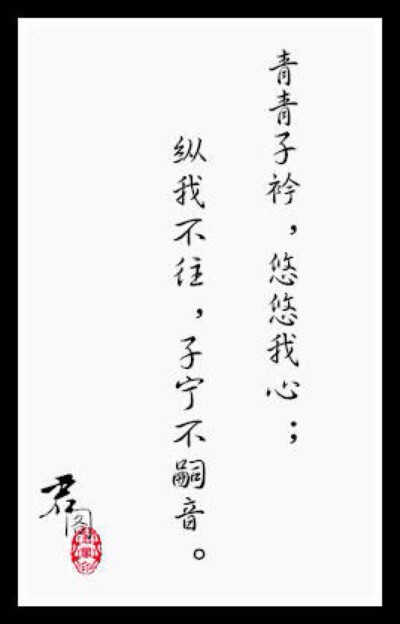 青青子衿，悠悠我心；
纵我不往，子宁不嗣音。
君
阁